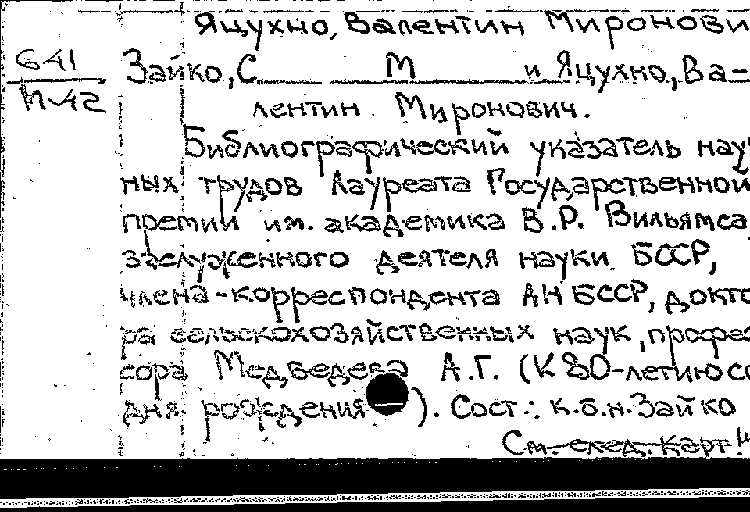 Яцухно, Валентин Миронови
641
Зайко, С М и Яцухно, Ва-
п-42
лентин Миронович.
Библиографический указатель науч
ных трудов Лауреата Государственной
премии им. академика В.Р. Вильямса,
заслуженного деятеля науки БССР,
члена-корреспондента АН БССР, докто
ра сельскохозяйственных наук, профес
сора Медведева А.Г. (К 80-летию со
дня рождения ). Сост.: к.б.н. Зайко
См. след. карт.